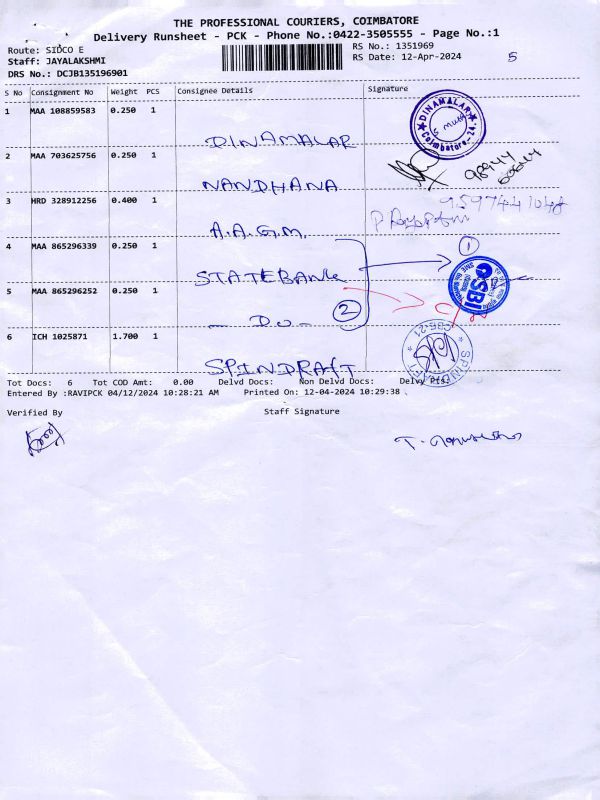 THE PROFESSIONAL COURIERS, COIMBATORE
Delivery Runsheet - PCK - Phone No.:0422-3505555 - Page No.:1
Route: SIDCO E
RS No.: 1351969
Staff: JAYALAKSHMI
RS Date: 12-Apr-2024
5
DRS No.: DCJB135196901
S No Consignment No Weight PCS Consignee Details Signature
1 MAA 108859583 0.250 1 DINAMALAR
DINAMALAR
Coimbatore-24.
2 MAA 703625756 0.250 1 NANDHANA
98944
3 HRD 328912256 0.400 1 A.A.G.M.
9597441048
4 MAA 865296339 0.250 1 STATEBANK
1
SBI
5 MAA 865296252 0.250 1 - Do -
2
6 ICH 1025871 1.700 1 SPINDRAFT
SPINDRAFT
CBE-21
Tot Docs: 6 Tot COD Amt: 0.00 Delvd Docs: Non Delvd Docs: Delvy Pts:
Entered By :RAVIPCK 04/12/2024 10:28:21 AM Printed On: 12-04-2024 10:29:38
Verified By Staff Signature